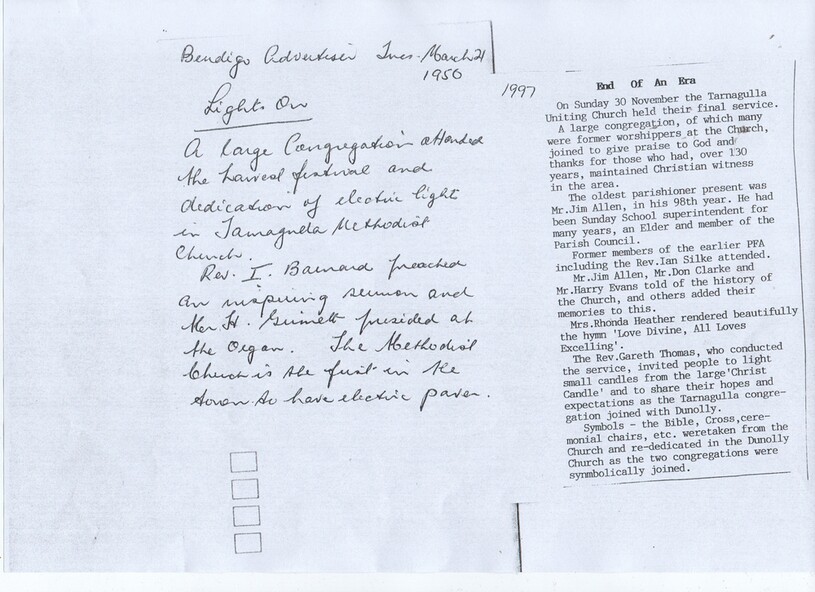 Bendigo Advertiser Tues. March 21
1950
Lights On
A large Congregation attended
the harvest festival and
dedication of electric light
in Tarnagulla Methodist
Church.
Rev. I. Barnard preached
an inspiring sermon and
Mr H. Grimmett presided at
the Organ. The Methodist
Church is the first in the
town to have electric power.
1997
End Of An Era
On Sunday 30 November the Tarnagulla
Uniting Church held their final service.
A large congregation, of which many
were former worshippers at the Church,
joined to give praise to God and
thanks for those who had, over 130
years, maintained Christian witness
in the area.
The oldest parishioner present was
Mr.Jim Allen, in his 98th year. He had
been Sunday School superintendent for
many years, an Elder and member of the
Parish Council.
Former members of the earlier PFA
including the Rev.Ian Silke attended.
Mr.Jim Allen, Mr.Don Clarke and
Mr.Harry Evans told of the history of
the Church, and others added their
memories to this.
Mrs.Rhonda Heather rendered beautifully
the hymn 'Love Divine, All Loves
Excelling'.
The Rev.Gareth Thomas, who conducted
the service, invited people to light
small candles from the large'Christ
Candle' and to share their hopes and
expectations as the Tarnagulla congre-
gation joined with Dunolly.
Symbols - the Bible, Cross,cere-
monial chairs, etc. weretaken from the
Church and re-dedicated in the Dunolly
Church as the two congregations were
synmbolically joined.